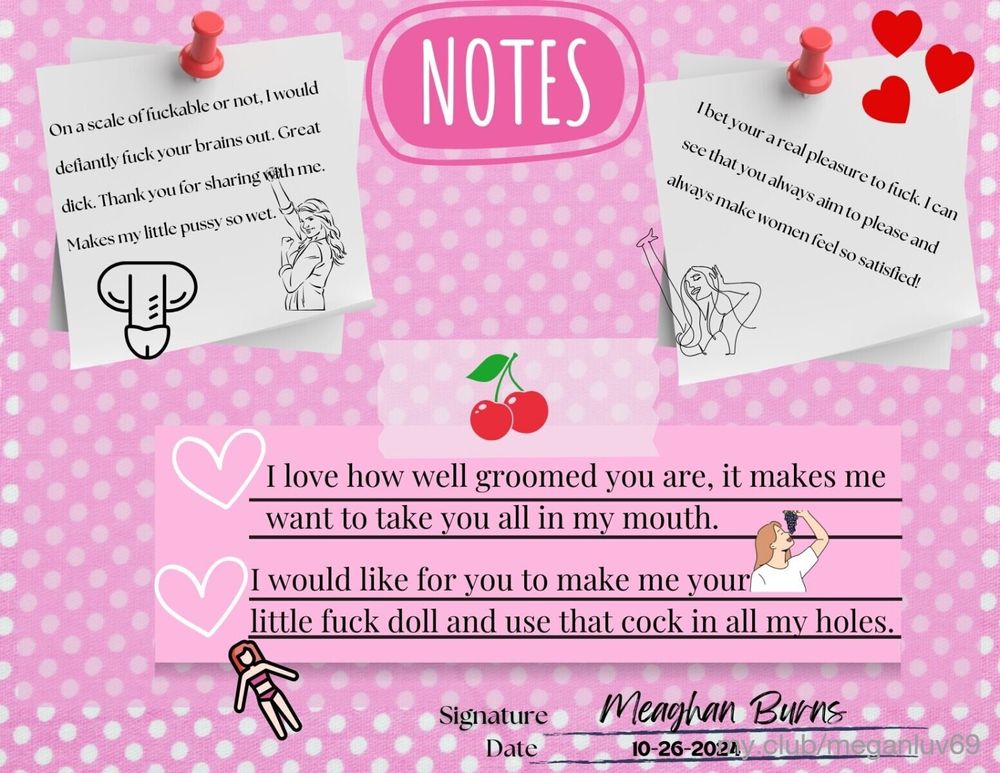 NOTES
On a scale of fuckable or not, I would
defiantly fuck your brains out. Great
dick. Thank you for sharing with me.
Makes my little pussy so wet.
I bet your a real pleasure to fuck. I can
see that you always aim to please and
always make women feel so satisfied!
I love how well groomed you are, it makes me
want to take you all in my mouth.
I would like for you to make me your
little fuck doll and use that cock in all my holes.
Signature Meaghan Burns
Date 10-26-2024
my.club/meganluv69